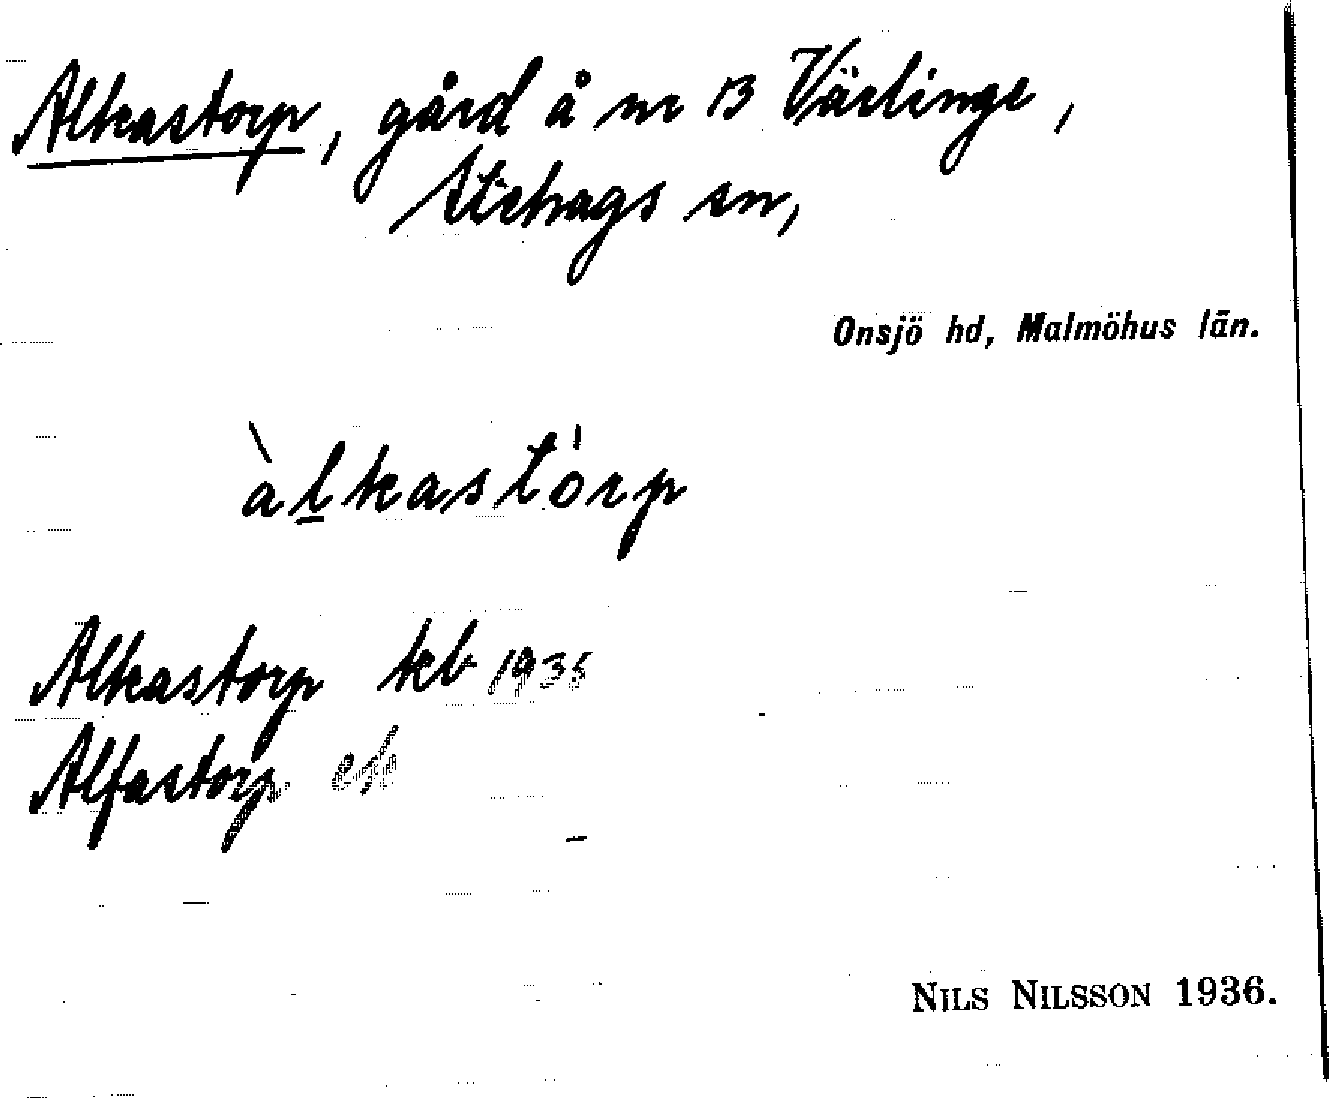 Alkastorp, gård å nr 13 Värlinge,
Stehags sn,
Onsjö hd, Malmöhus län.
àlkastórp
Alkastorp kb 1935
Alfastorp ek
NILS NILSSON 1936.